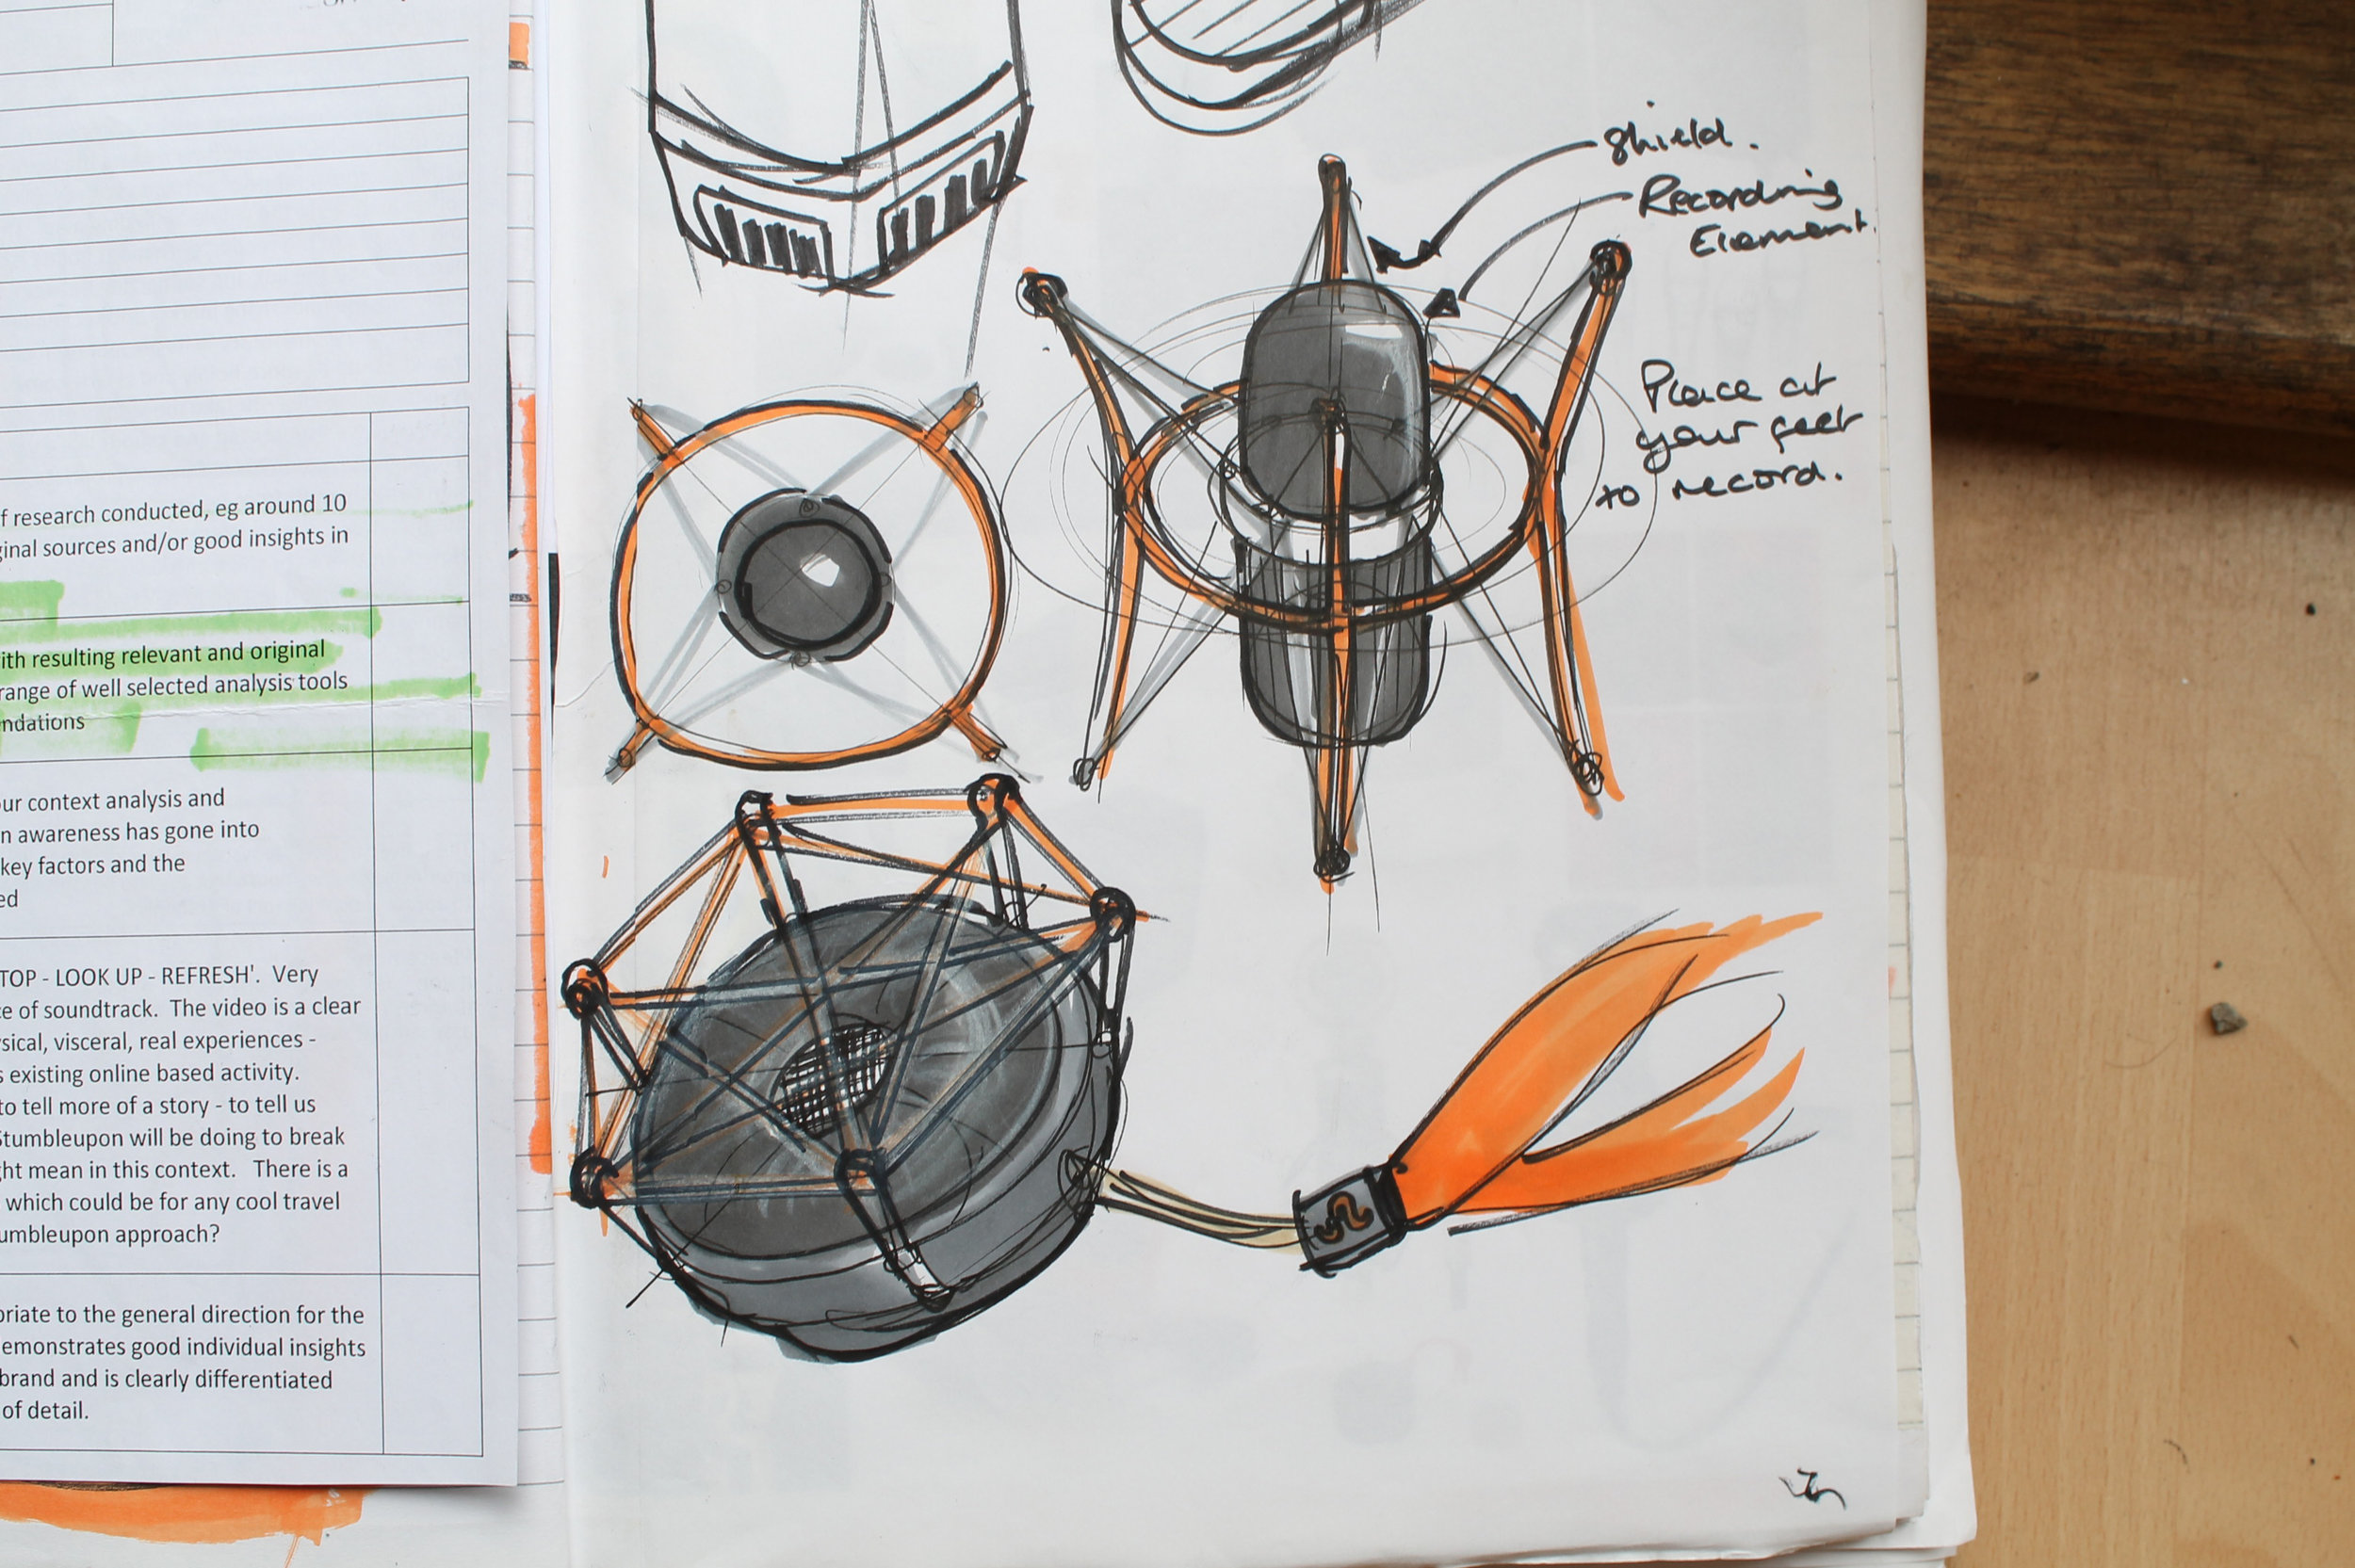 f research conducted, eg around 10
ginal sources and/or good insights in
ith resulting relevant and original
range of well selected analysis tools
ndations
ur context analysis and
n awareness has gone into
key factors and the
ed
TOP - LOOK UP - REFRESH'. Very
ce of soundtrack. The video is a clear
ysical, visceral, real experiences -
s existing online based activity.
to tell more of a story - to tell us
Stumbleupon will be doing to break
ght mean in this context. There is a
which could be for any cool travel
umbleupon approach?
oriate to the general direction for the
emonstrates good individual insights
brand and is clearly differentiated
of detail.
shield.
Recording
Element.
Place at
your feet
to record.